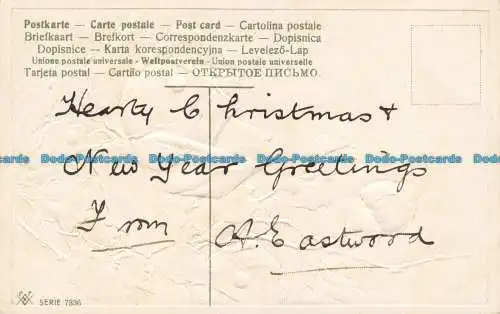 Postkarte — Carte postale — Post card — Cartolina postale
Briefkaart — Brefkort — Correspondenzkarte — Dopisnica
Dopisnice — Karta korespondencyjna — Levelező-Lap
Unione postale universale - Weltpostverein - Union postale universelle
Tarjeta postal — Cartão postal — ОТКРЫТОЕ ПИСЬМО.
Hearty Christmas +
Dodo-Postcards Dodo-Postcards Dodo-Postcards Dodo-Postcards
New Year Greetings
From A. Eastwood
Dodo-Postcards Dodo-Postcards Dodo-Postcards Dodo-Postcards
SERIE 7336